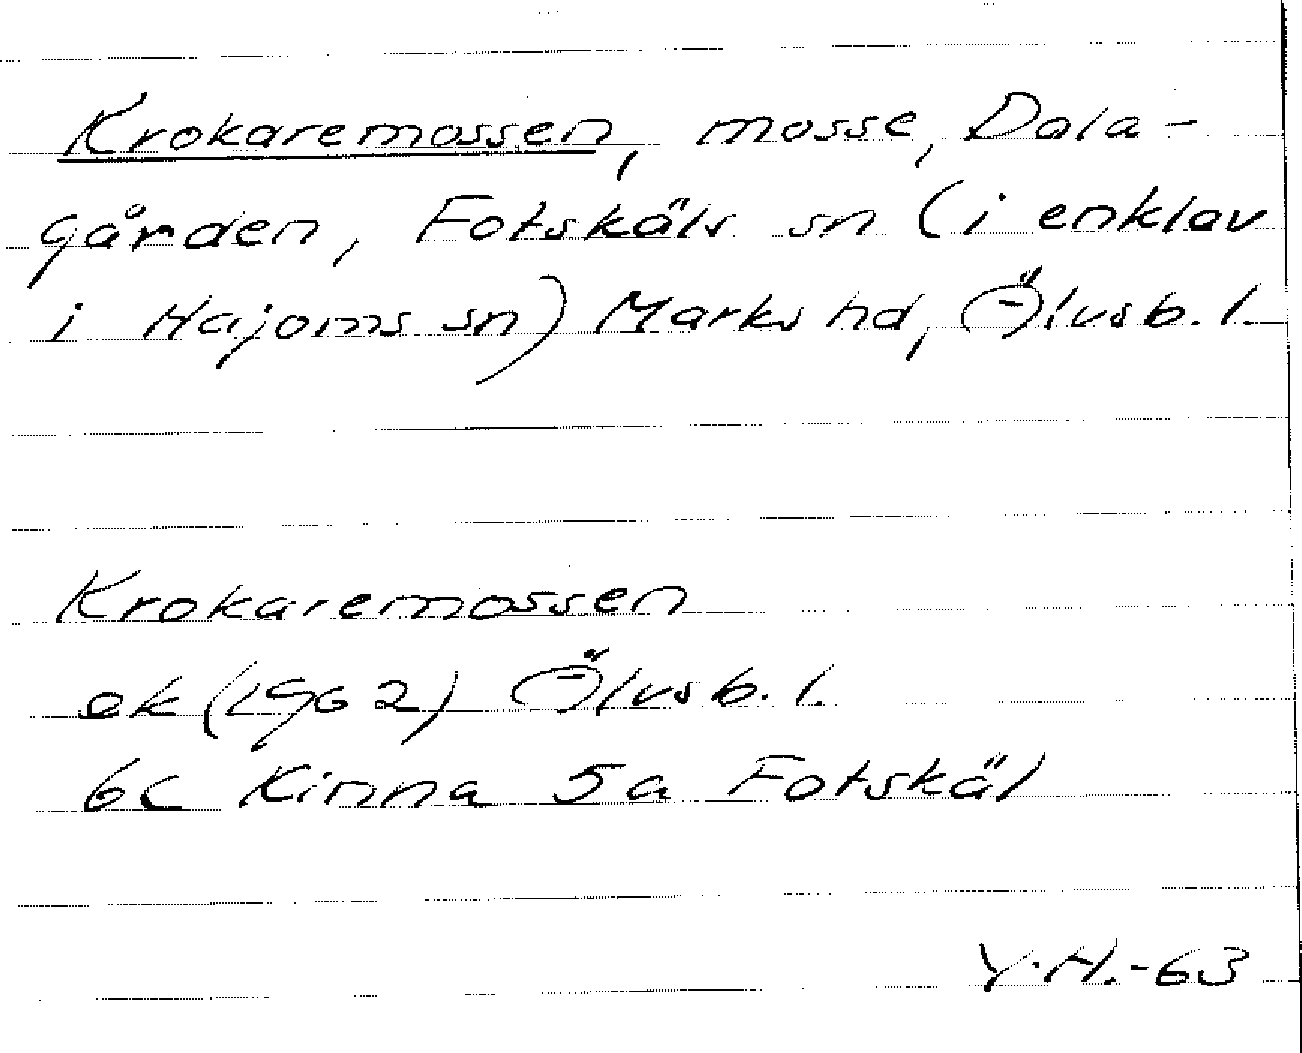 Krokaremossen, mosse, Dala-
gården, Fotskäls sn (i enklav
i Hajoms sn) Marks hd, Älvsb. l.
Krokaremossen
ek (1962) Älvsb. l.
6C Kinna 5a Fotskäl
Y.H.-63